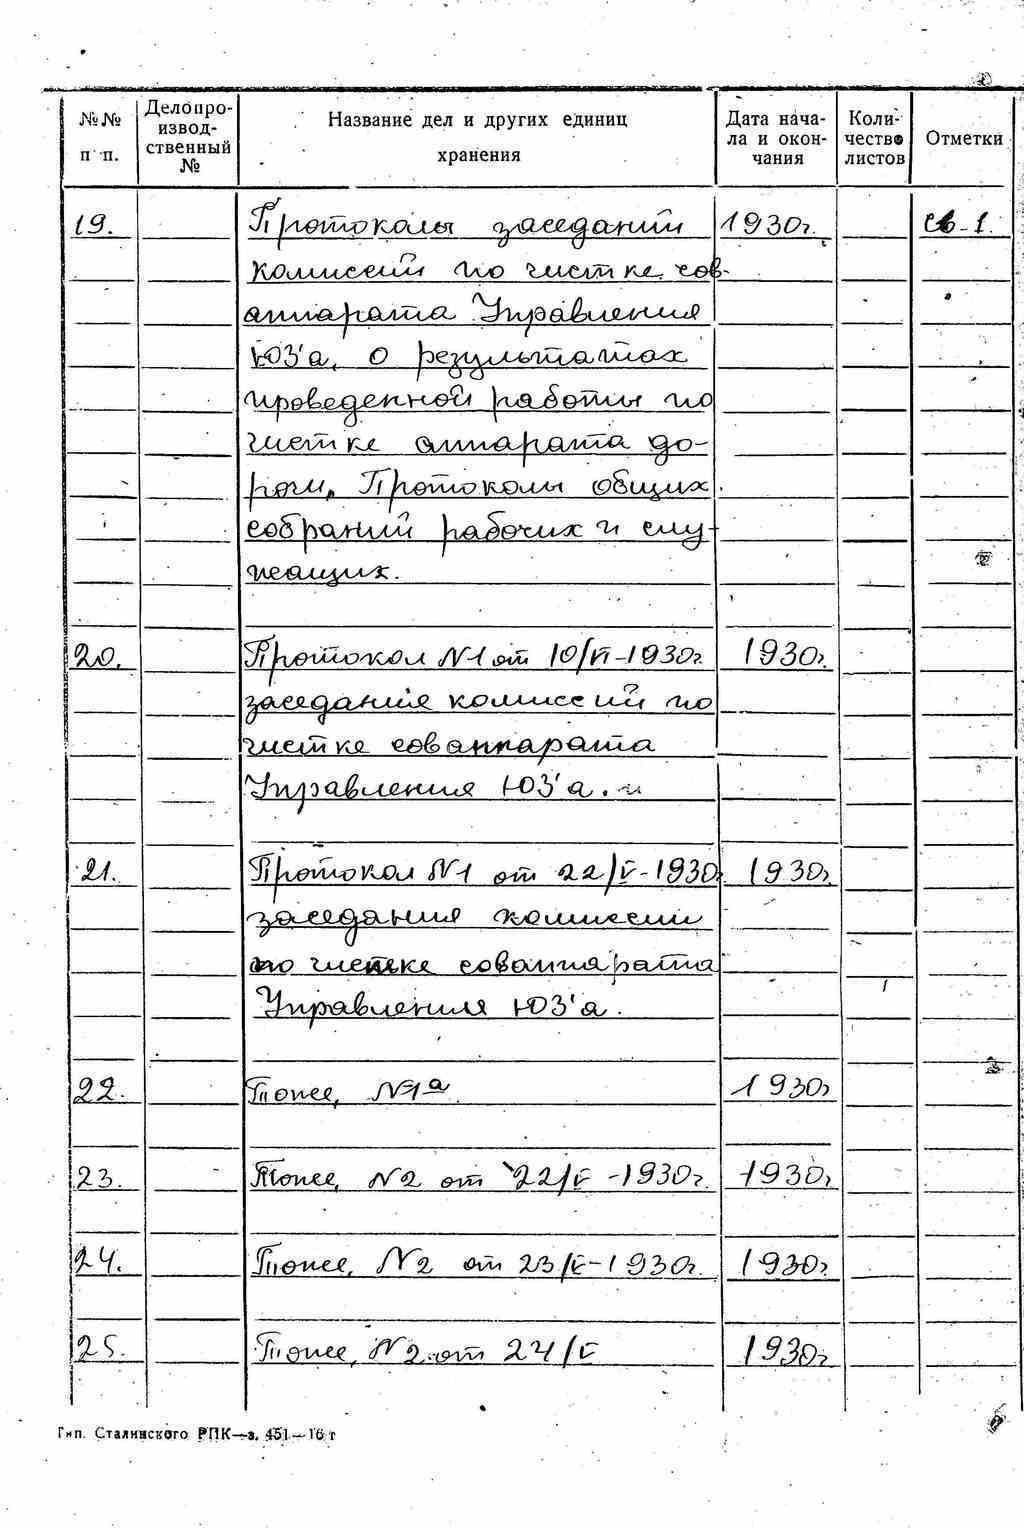 №№ п п.
Делопроизводственный №
Название дел и других единиц хранения
Дата начала и окончания
Количество листов
Отметки
19. Протоколы заседаний 1930г. св-1.
комиссий по чистке сов-
аппарата Управления
ЮЗ'а, о результатах
проведенной работы по
чистке аппарата до-
роги. Протоколы общих
собраний рабочих и слу-
жащих.
20. Протокол №1 от 10/VI-1930г. 1930г.
заседания комиссий по
чистке соваппарата
Управления ЮЗ'а.
21. Протокол №1 от 22/V-1930г. 1930г.
заседания комиссии
по чистке соваппарата
Управления ЮЗ'а.
22. Тоже, №1а 1930г
23. Тоже, №2 от 22/V-1930г. 1930г.
24. Тоже, №2 от 23/V-1930г. 1930г.
25. Тоже, №2 от 24/V 1930г
Тип. Сталинского РПК—з. 451—16 т